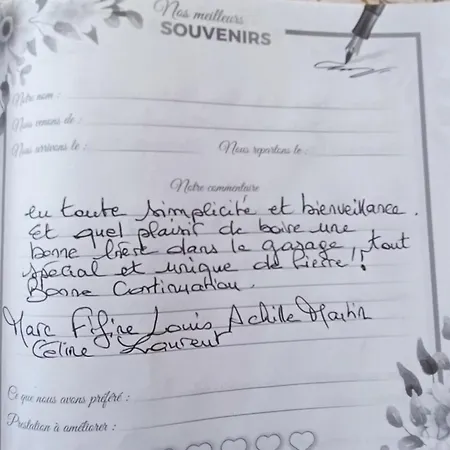 Nos meilleurs
SOUVENIRS
Notre nom :
Nous venons de :
Nous arrivons le :
Nous repartons le :
Notre commentaire
en toute simplicité et bienveillance.
Et quel plaisir de boire une
bonne dans le garage, tout
spécial et unique de Pierre !
Bonne Continuation.
Marc Louis Achille Martin
Céline Laurent
Ce que nous avons préféré :
Prestation à améliorer :